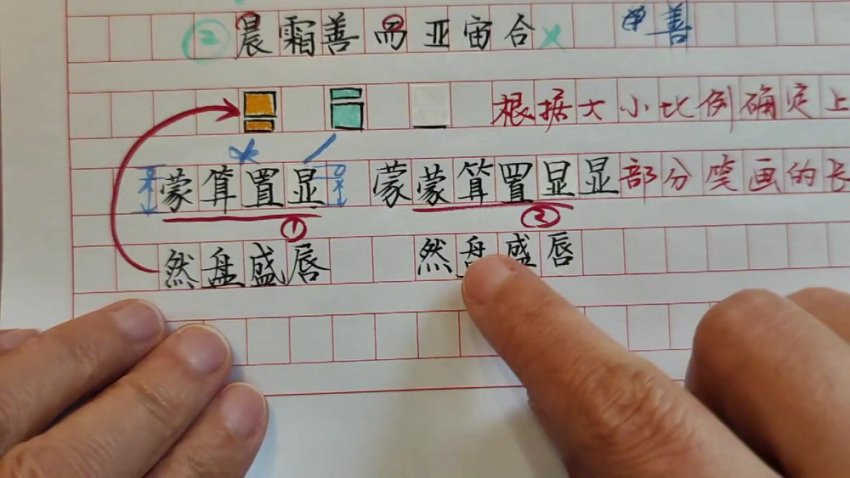 ② 晨霜善而亚宙合 善
根据大小比例确定上
蒙算置显 蒙蒙算置显显部分笔画的长
① ②
然盘盛唇 然盘盛唇